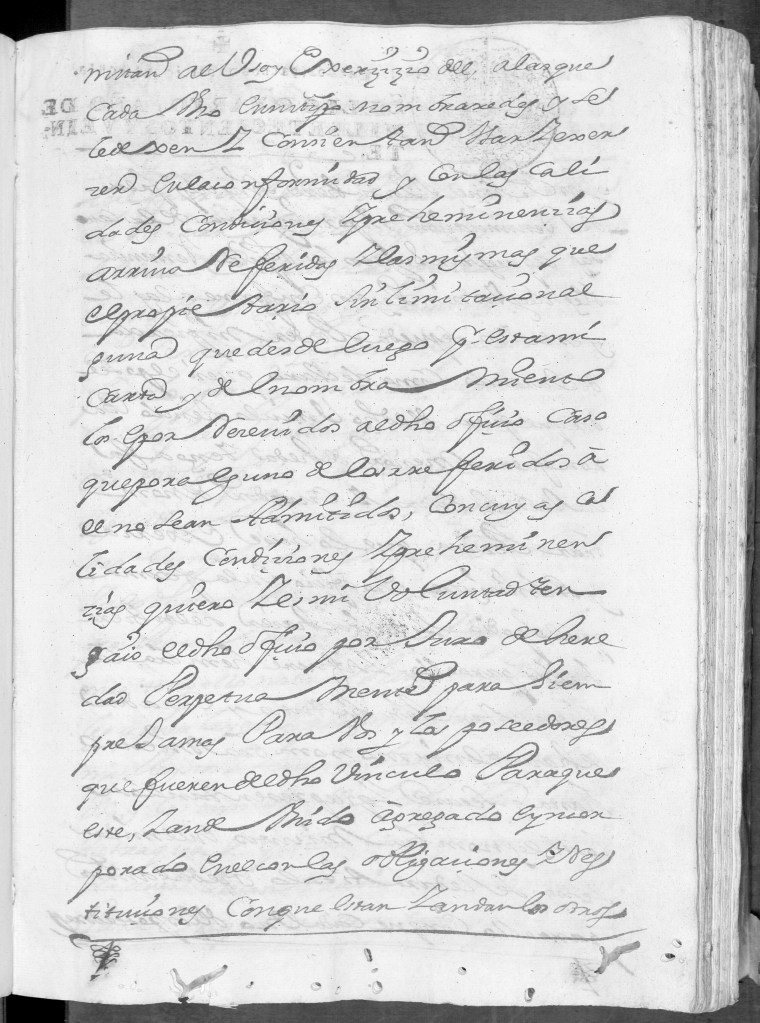 mitan al Uso y Exerzizio del, a los que
Cada Uno en su tpo nombraredes y se
les den y Consientan Usar y exer
zer en la conformidad y con las cali
dades Condiziones y preheminenzias
arriva Referidas y las mismas que
el propietario sin limitazion al
guna que desde luego pr esta mi
Carta y del nombra Miento
los e por Rezevidos al dho ofizio Caso
que por alguno de los rreferidos a
el no sean Admitidos, Con cuyas ca
lidades Condiziones y preheminen
zias quiero y es mi Voluntad ten
gais el dho ofizio por Juro de here
dad Perpetua Mente para siem
pre Jamas Para Vos y los poseedores
que fueren del dho Vinculo Para que
este, y ande Unido agregado e yncor
porado en el con las obligaziones y Res
tituziones Con que estan y andan los otros